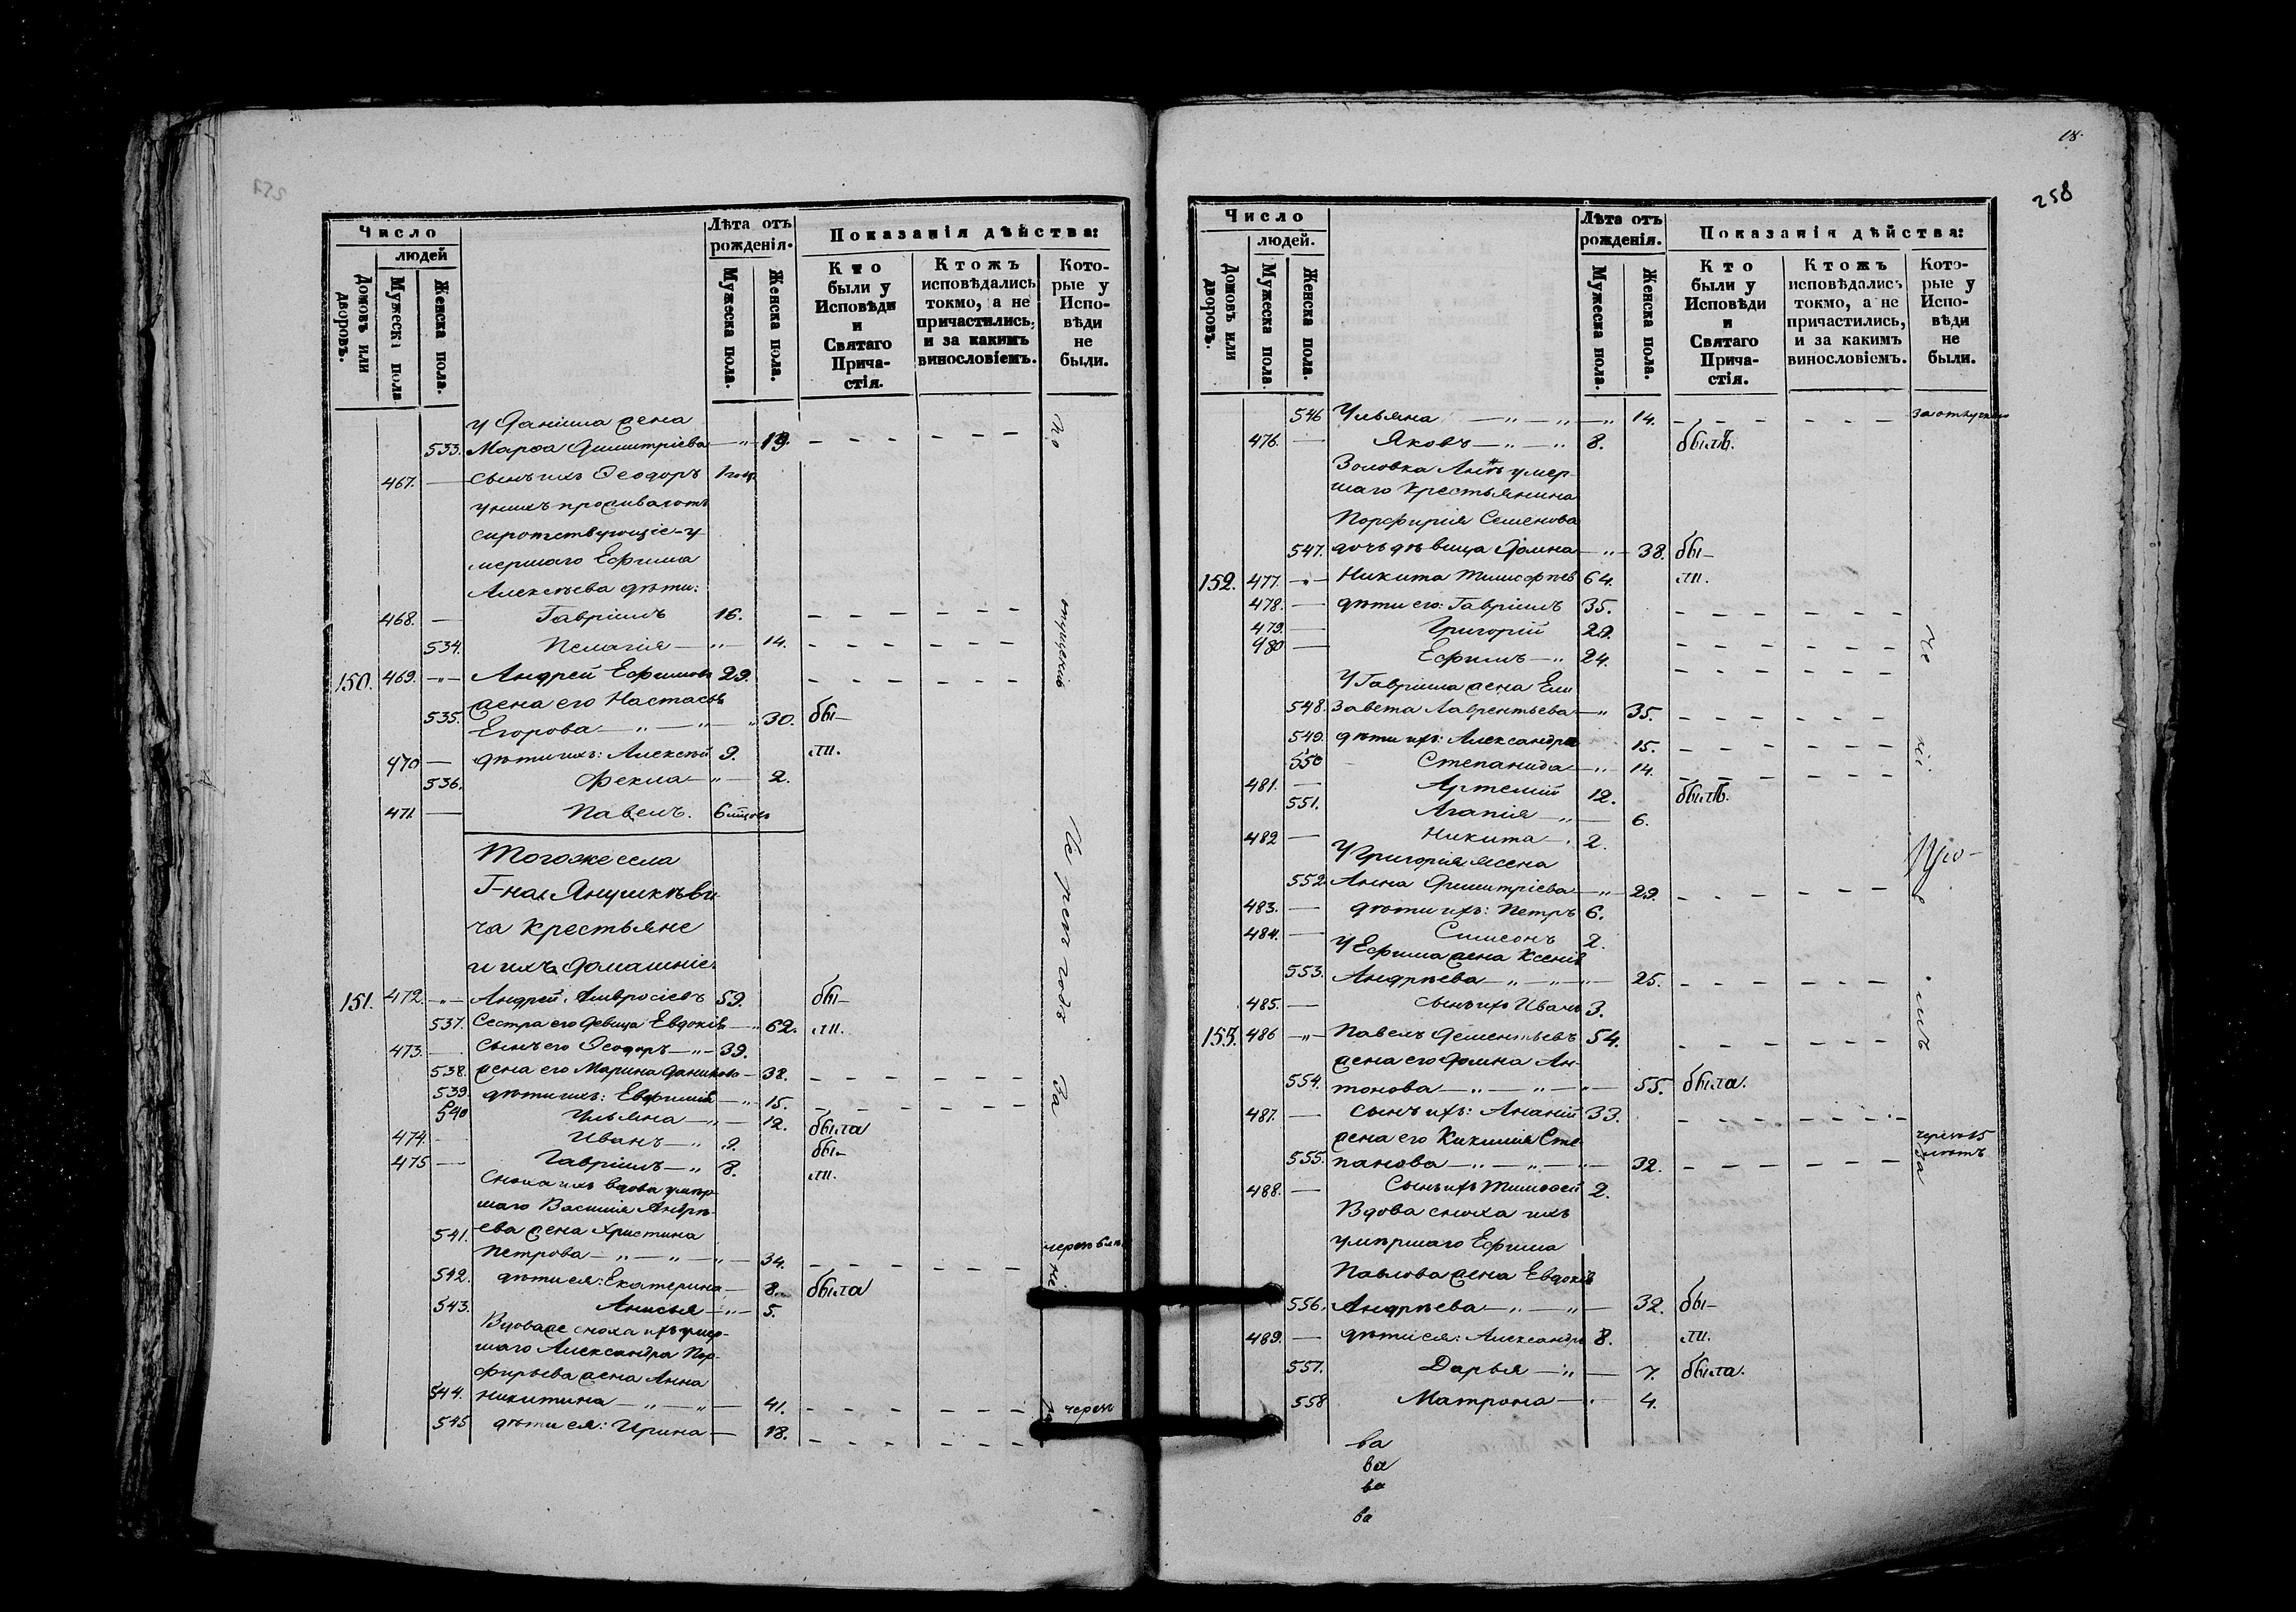 257
Число
людей
Домовъ или дворовъ.
Мужеска пола
Женска пола.
Лѣта отъ рожденія.
Мужеска пола.
Женска пола.
Показанія дѣйства:
Кто были у Исповѣди и Святаго Причастія.
Ктожъ исповѣдались токмо, а не причастились, и за какимъ винословіемъ.
Которые у Исповѣди не были.
у Даніила жена
533. Марѳа Димитріева — 19. – – – – – –
467. — сынъ ихъ Ѳеодоръ 1 годъ
у нихъ проживаютъ
сиротствующіе у-
мершаго Ефима
Алексѣева дѣти:
468. — Гавріилъ 16. – – – – – –
534. Пелагія — " — 14. – – – – – –
150. 469. — " — Андрей Ефимовъ 29. – – – – – –
жена его Настасья
535. Егорова — " — " — " 30. бы–
470 — дѣти ихъ: Алексѣй 9. ли.
536. Фекла — " — 2.
471. — Павелъ. 6 мѣсяцъ
Тогоже села
Г-на Янушкѣви
ча крестьяне
и ихъ домашніе
151. 472. — " — Андрей Амвросіевъ 59. бы–
537. Сестра его девица Евдокія — " 62. ли.
473. — Сынъ его Ѳеодоръ — " — 39.
538. жена его Марина Данилова — 38. – – – – – –
539. дѣти ихъ: Евфимія — " — 15. – – – – – –
540 Ульяна — " — 12. была
474. — Иванъ — " 9. бы–
475 — Гавріилъ — " 8. ли.
Сноха ихъ вдова умер
шаго Василія Андрѣ-
541. ева жена Христина
Петрова — " — " — " — 34. – – – – – –
542. дѣти ея: Екатерина — 8. была
543. Анисья — " — 5.
Вдова же сноха ихъ умер-
шаго Александра Пор-
фирьева жена Анна
544. Никитина — " — " — 41. – – – – – – черезъ
545 дѣти ея: Ирина — 18. – – – – – –
По
опущенію
Черезъ годъ
За
18.
258
Число
людей.
Домовъ или дворовъ.
Мужеска пола.
Женска пола.
Лѣта отъ рожденія.
Мужеска пола.
Женска пола.
Показанія дѣйства:
Кто были у Исповѣди и Святаго Причастія.
Ктожъ исповѣдались токмо, а не причастились, и за какимъ винословіемъ.
Которые у Исповѣди не были.
546 Ульяна — " — " — " 14. – – – – – –
476. — Яковъ — " — " 8. былъ.
Золовка Аннѣ умер-
шаго крестьянина
Порфирія Семенова
547. дочь дѣвица Домна — " — 38. бы–
152. 477. — " — Никита Тимофѣев 64. ли.
478. — дѣти его: Гавріилъ 35. – – – – – –
479. — Григорій 29. – – – – – –
480 — Ефимъ — " 24. – – – – – –
У Гавріила жена Ели
548. завета Лаврентьева — " 35. – – – – – –
549. дѣти ихъ: Александра 15. – – – – – –
550 Степанида — " — 14. – – – – – –
481. — Артемій 12. былъ.
551. Агапія — " — 6.
482 — Никита — 2.
У Григорія жена
552. Анна Димитріева — " — 29. – – – – – –
483. — дѣти ихъ: Петръ 6.
484. — Симеонъ 2.
у Ефима жена Ксенія
553. Андрѣева — " — " — " — 25. – – – – – –
485. — сынъ ихъ Иванъ 3.
153. 486 — " — Павелъ Дементьевъ 54. – – – – – –
жена его Домна Ан-
554. тонова — " — " — " — 55. была.
487. — Сынъ ихъ: Ананій 33. – – – – – –
жена его Кикилія Сте
555. панова — " — " — " — 32. – – – – – –
488. — Сынъ ихъ Тимоѳей 2.
Вдова сноха ихъ
умершаго Ефима
Павлова жена Евдокія
556. Андрѣева — " — " — 32. бы–
489. — дѣти ея: Александръ 8. ли.
557. Дарья — " — 7. была.
558 Матрона — " — 4.
ва
ва
ва
ва